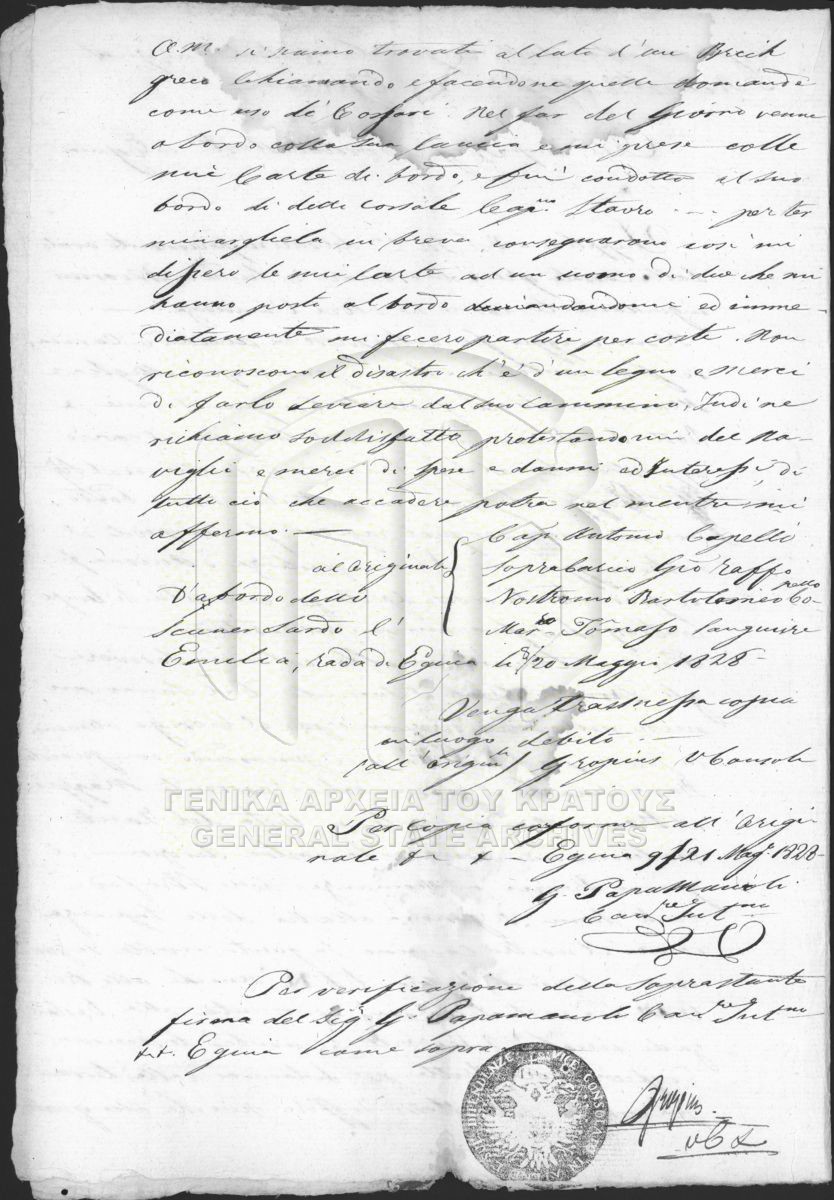 a.m. si siamo trovati al lato d'un Breik
greco chiamando e facendone quelle domande
come uso di Corsari. Nel far del Giorno venne
a bordo colla sua lancia e mi prese colle
mie Carte di bordo, e fui condotto al suo
bordo di detto corsale Stavro per ter
minarghiela in breve consegnarono così mi
dissero le mie Carte ad un uomo di due che mi
hanno posto al bordo ed imme
diatamente mi fecero partire per costi. Non
riconoscono il disastro ch'è d'un legno e merci
di farlo deviare dal suo cammino, Indi ne
richiamo soddisfatto protestandomi del Na
viglio e merci di spese e danni ed Interessi di
tutto ciò che accadere potrà nel mentre mi
affermo. —
Cap. Antonio Capelli
al Originale Soprabarico Gio Raffo
D'a bordo dello Nostromo Bartolomeo Co
Scuner Sardo l' Mar.ro Tomaso Sanguine
Emilia, rada di Egina li 8/20 Maggio 1828
Venga trasmessa copia
in luogo debito —
(all' origin.le) Gropius VConsole
ΓΕΝΙΚΑ ΑΡΧΕΙΑ ΤΟΥ ΚΡΑΤΟΥΣ
GENERAL STATE ARCHIVES
Per copia conforme all'Origi
nale Egina 9/21 Mag. 1828
G. PapaManoli
Can.re Int.no
Per verificazione della soprastante
firma del Sig. G. Papamanoli Can.re Int.no
Egina come sopra
Gropius